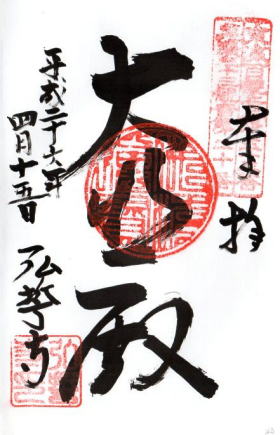 奉拝
大悲殿
平成二十六年
四月十五日
弘誓寺